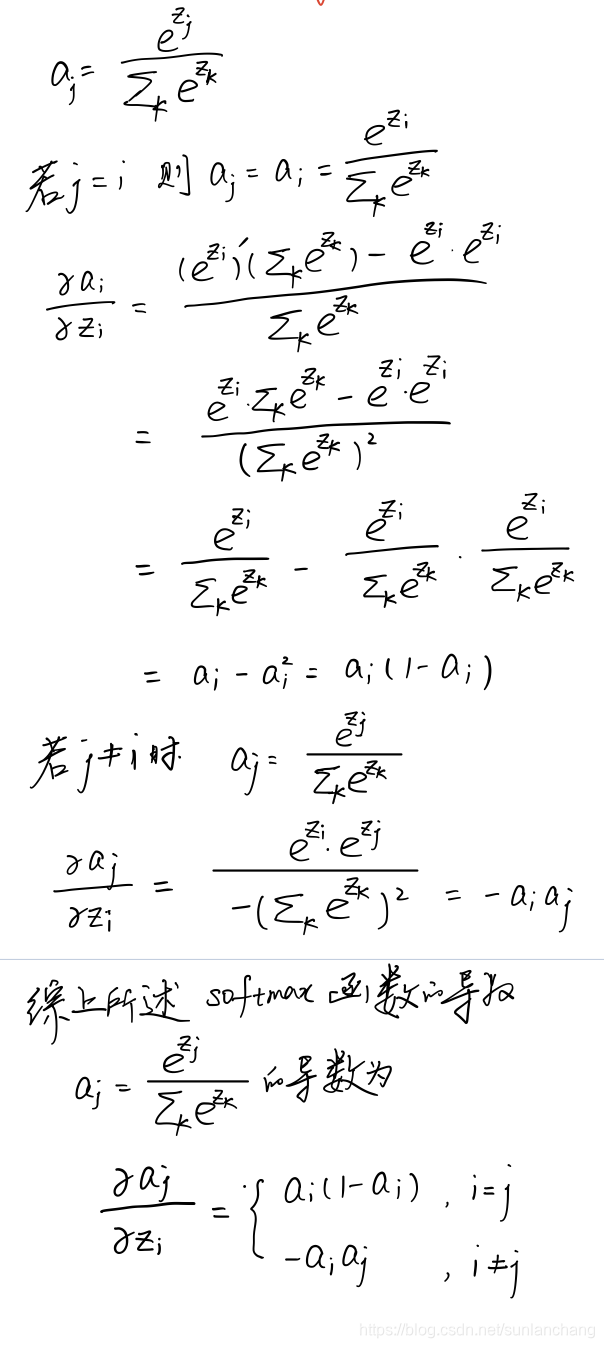 a_j = e^{z_j} / ∑_k e^{z_k}
若 j = i 则 a_j = a_i = e^{z_i} / ∑_k e^{z_k}
∂a_i / ∂z_i = ((e^{z_i})′(∑_k e^{z_k}) − e^{z_i} · e^{z_i}) / ∑_k e^{z_k}
= (e^{z_i} · ∑_k e^{z_k} − e^{z_i} · e^{z_i}) / (∑_k e^{z_k})²
= e^{z_i} / ∑_k e^{z_k} − e^{z_i} / ∑_k e^{z_k} · e^{z_i} / ∑_k e^{z_k}
= a_i − a_i² = a_i(1 − a_i)
若 j ≠ i 时. a_j = e^{z_j} / ∑_k e^{z_k}
∂a_j / ∂z_i = e^{z_i} · e^{z_j} / −(∑_k e^{z_k})² = −a_i a_j
综上所述 softmax 函数的导数
a_j = e^{z_j} / ∑_k e^{z_k} 的导数为
∂a_j / ∂z_i = { a_i(1 − a_i) , i = j
−a_i a_j , i ≠ j
https://blog.csdn.net/sunlanchang